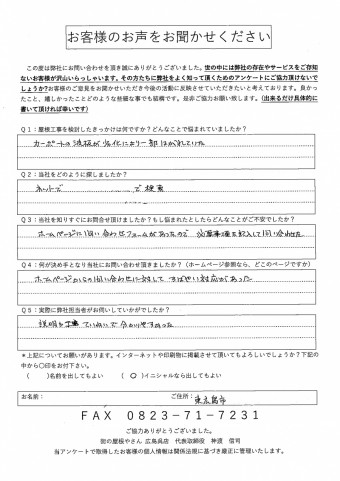 お客様のお声をお聞かせください
この度は弊社にお問い合わせを頂き誠にありがとうございました。世の中には弊社の存在やサービスをご存知
ないお客様が沢山いらっしゃいます。その方たちに弊社をよく知って頂くためのアンケートにご協力頂けないで
しょうか?お客様のご意見をお聞かせいただき今後の活動に反映させていただきたいと考えております。良かっ
たこと、嬉しかったことどのような些細な事でも結構です。是非ご協力お願い致します。(出来るだけ具体的に
書いて頂ければ幸いです)
Q1:屋根工事を検討したきっかけは何ですか?どんなことで悩まれていましたか?
カーポートの波板が劣化により一部はがれていた
Q2:当社をどのように探しましたか?
ネットで で検索
Q3:当社を知りすぐにお問合せ頂けましたか?もし悩まれたとしたらどんなことがご不安でしたか?
ホームページに問い合わせフォームがあったので 必要事項を記入して問い合わせた
Q4:何が決め手となり当社にお問い合わせ頂きましたか?(ホームページ参照なら、どこのページですか)
ホームページからの問い合わせに対して すばやい対応があった
Q5:実際に弊社担当者がお伺いしていかがでしたか?
説明も ていねいで 分かりやすかった
*上記についてお願いがあります。インターネットや印刷物に掲載させて頂いてもよろしいでしょうか?下記の
中から〇印をお付け下さい。
( )名前を出してもよい (○)イニシャルなら出してもよい
お名前: ご住所: 東広島市
FAX 0823-71-7231
ご協力ありがとうございました。
街の屋根やさん 広島呉店 代表取締役 神渡 信司
当アンケートで取得したお客様の個人情報は関係法規に基づき厳正に管理いたします。